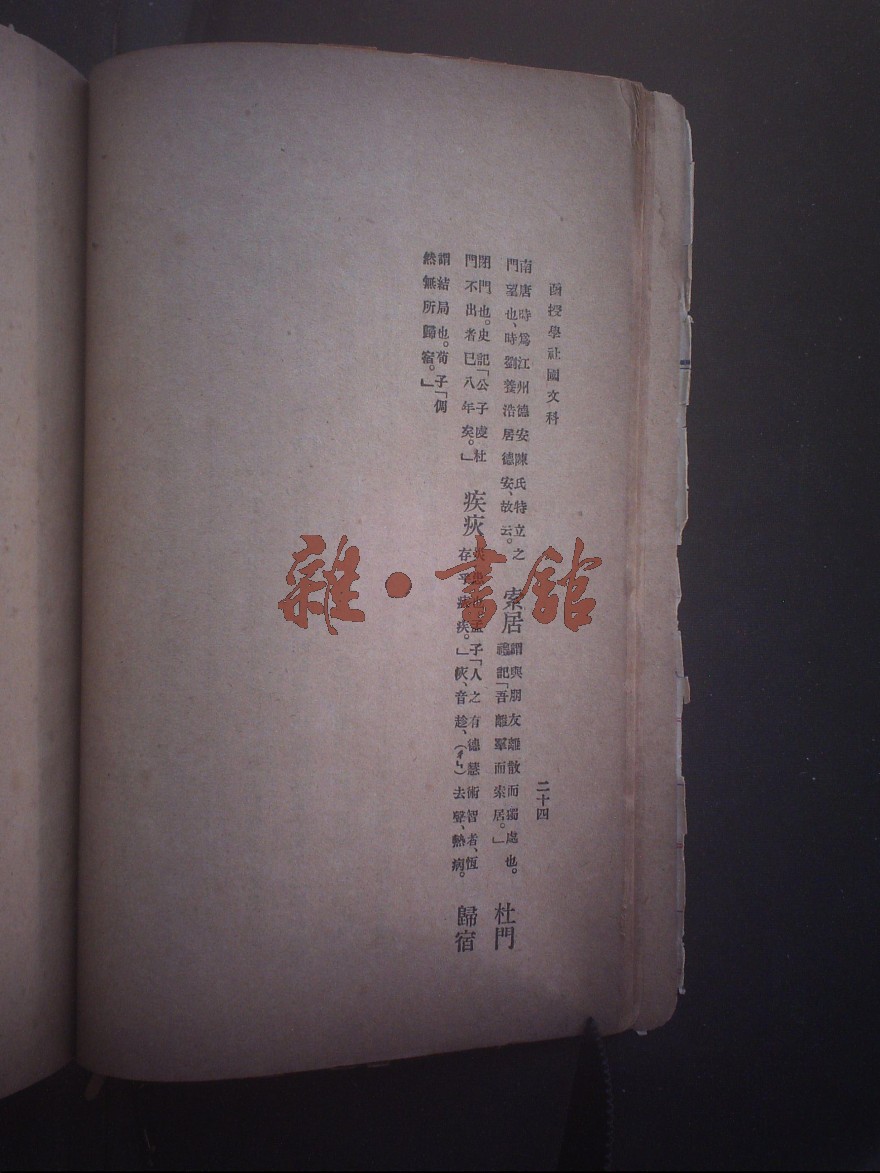 函授學社國文科
二十四
南唐時爲江州德安陳氏特立之
門望也、時劉養浩居德安、故云。
索居
謂與朋友離散而獨處也。
禮記「吾離羣而索居。」
杜門
閉門也。史記「公子虔杜
門不出者已八年矣。」
疾疢
災患也孟子「人之有德慧術智者、恆
存乎疢疾。」疢、音趁、(ㄔㄣ)去聲、熱病。
歸宿
謂結局也。荀子「倜
然無所歸宿。」
雜·書館